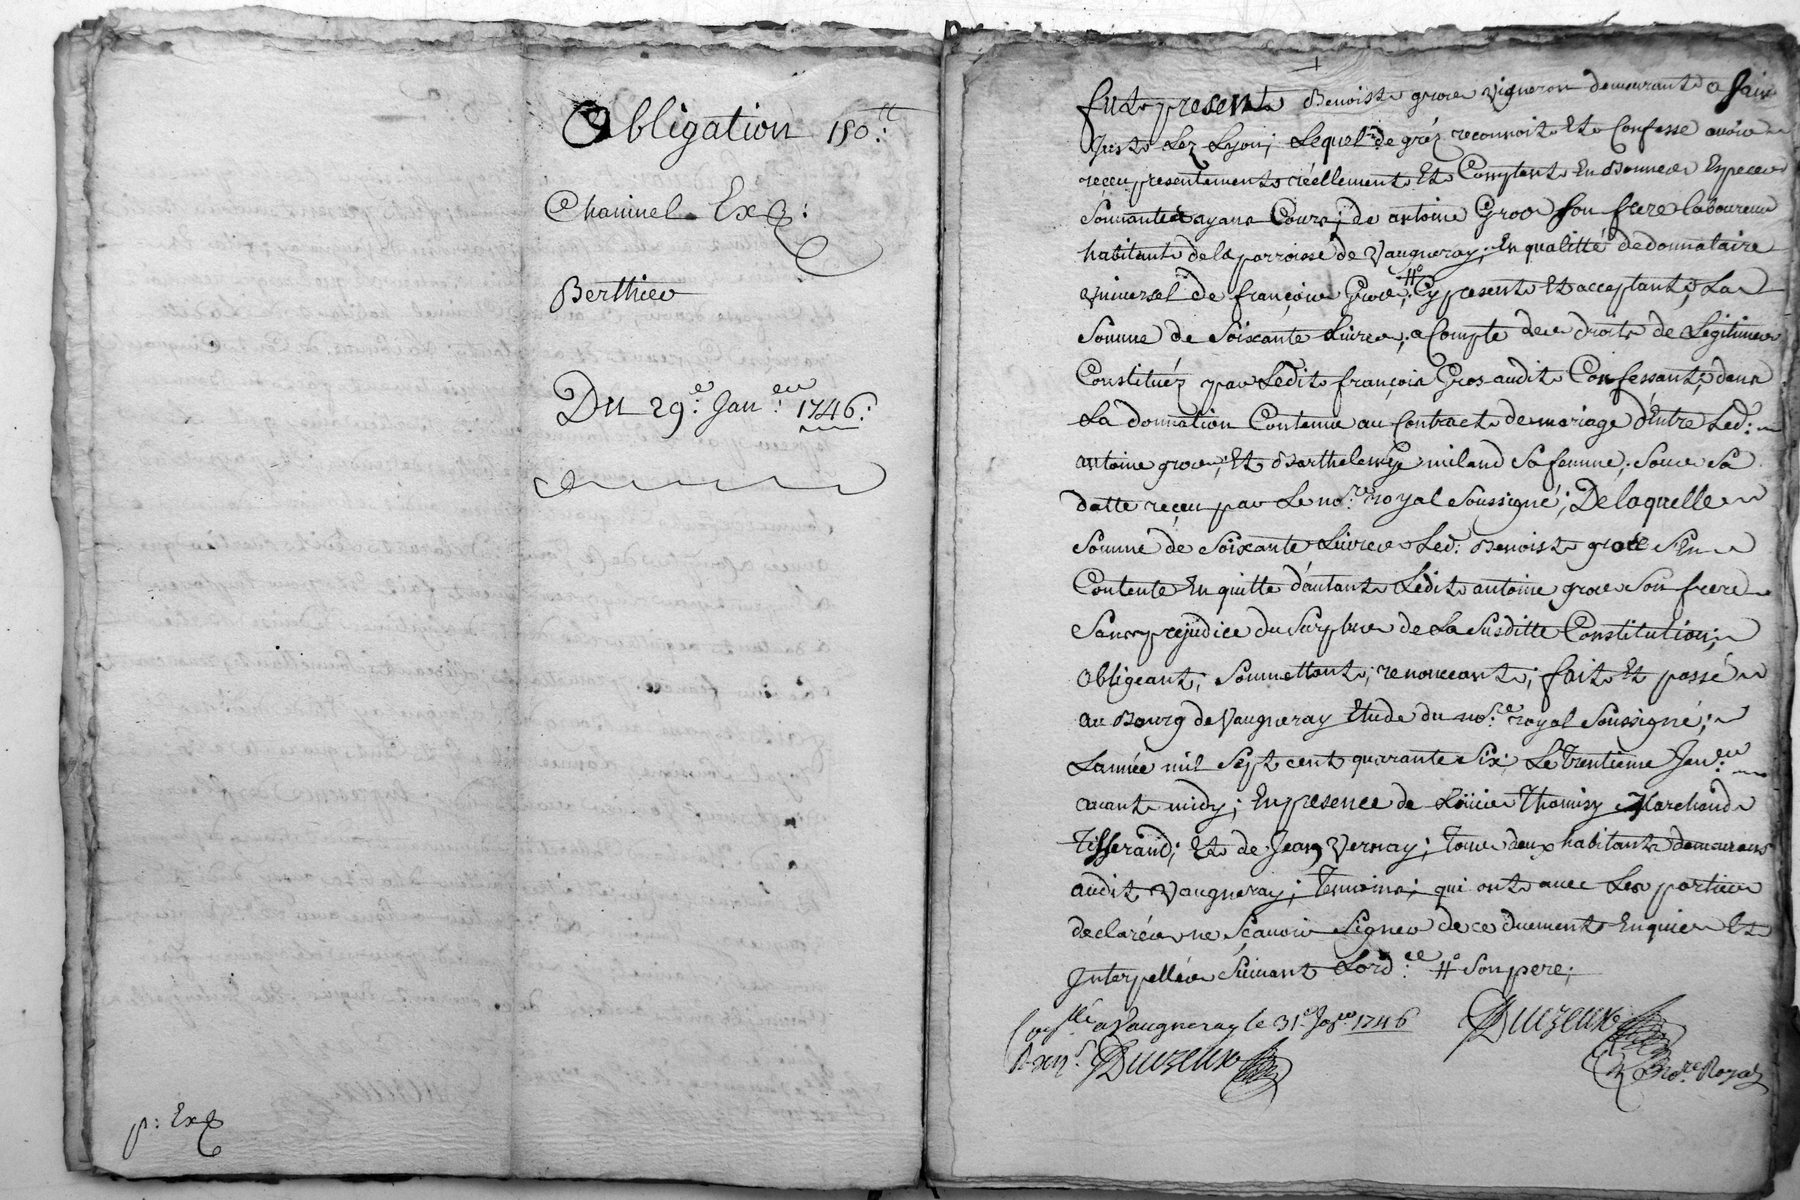 Obligation 150.lt
Chaninel Exp:
Berthieu
Du 29.e Jan.er 1746.
p: Exp
fut present Benoist gros vigneron demeurant a Saint
Just Lez Lyon; Lequel de gréz reconnoit Et Confesse avoir
reçeu presentement réellement Et Comptant En Bonnes Especes
Sonnantes ayans Cours; de antoine Gros Son frere laboureur
habitant de la parroisse de Vaugneray; En qualitté de donnataire
universel de françois Gros # Cy present Et acceptant; La
Somme de Soixante Livres; a Compte des droits de Legitimes
Constituéz par Ledit françois Gros audit Confessant; dans
La donnation Contenue au Contract de mariage d'Entre Led:
antoine gros; Et Barthelemye miland Sa femme, Sous Sa
datte reçeu par Le no.re royal Soussigné; De laquelle
Somme de Soixante Livres Led: Benoist gros S'En
Contente En quitte d'autant Ledit antoine gros Son frere
Sans prejudice du Surplus de La Susditte Constitution;
obligeant; Soumettant; renonceant; fait Et passé
au Bourg de Vaugneray Etude du no.re royal Soussigné;
L'année mil Sept cent quarante Six Le trentieme Jan.er
avant midy; En presence de Loüis Thomisy Marchand
Tisserand; Et de Jean Vernay; tous deux habitants demeurans
audit Vaugneray; Temoins; qui ont avec Les parties
declarées ne Sçavoir Signer de ce duement Enquis Et
Interpellés Suivant L'ord.ce # Son pere;
Con.llé a Vaugneray le 31.e Jan.er 1746
Duizeux
Duizeux
No.re Royal